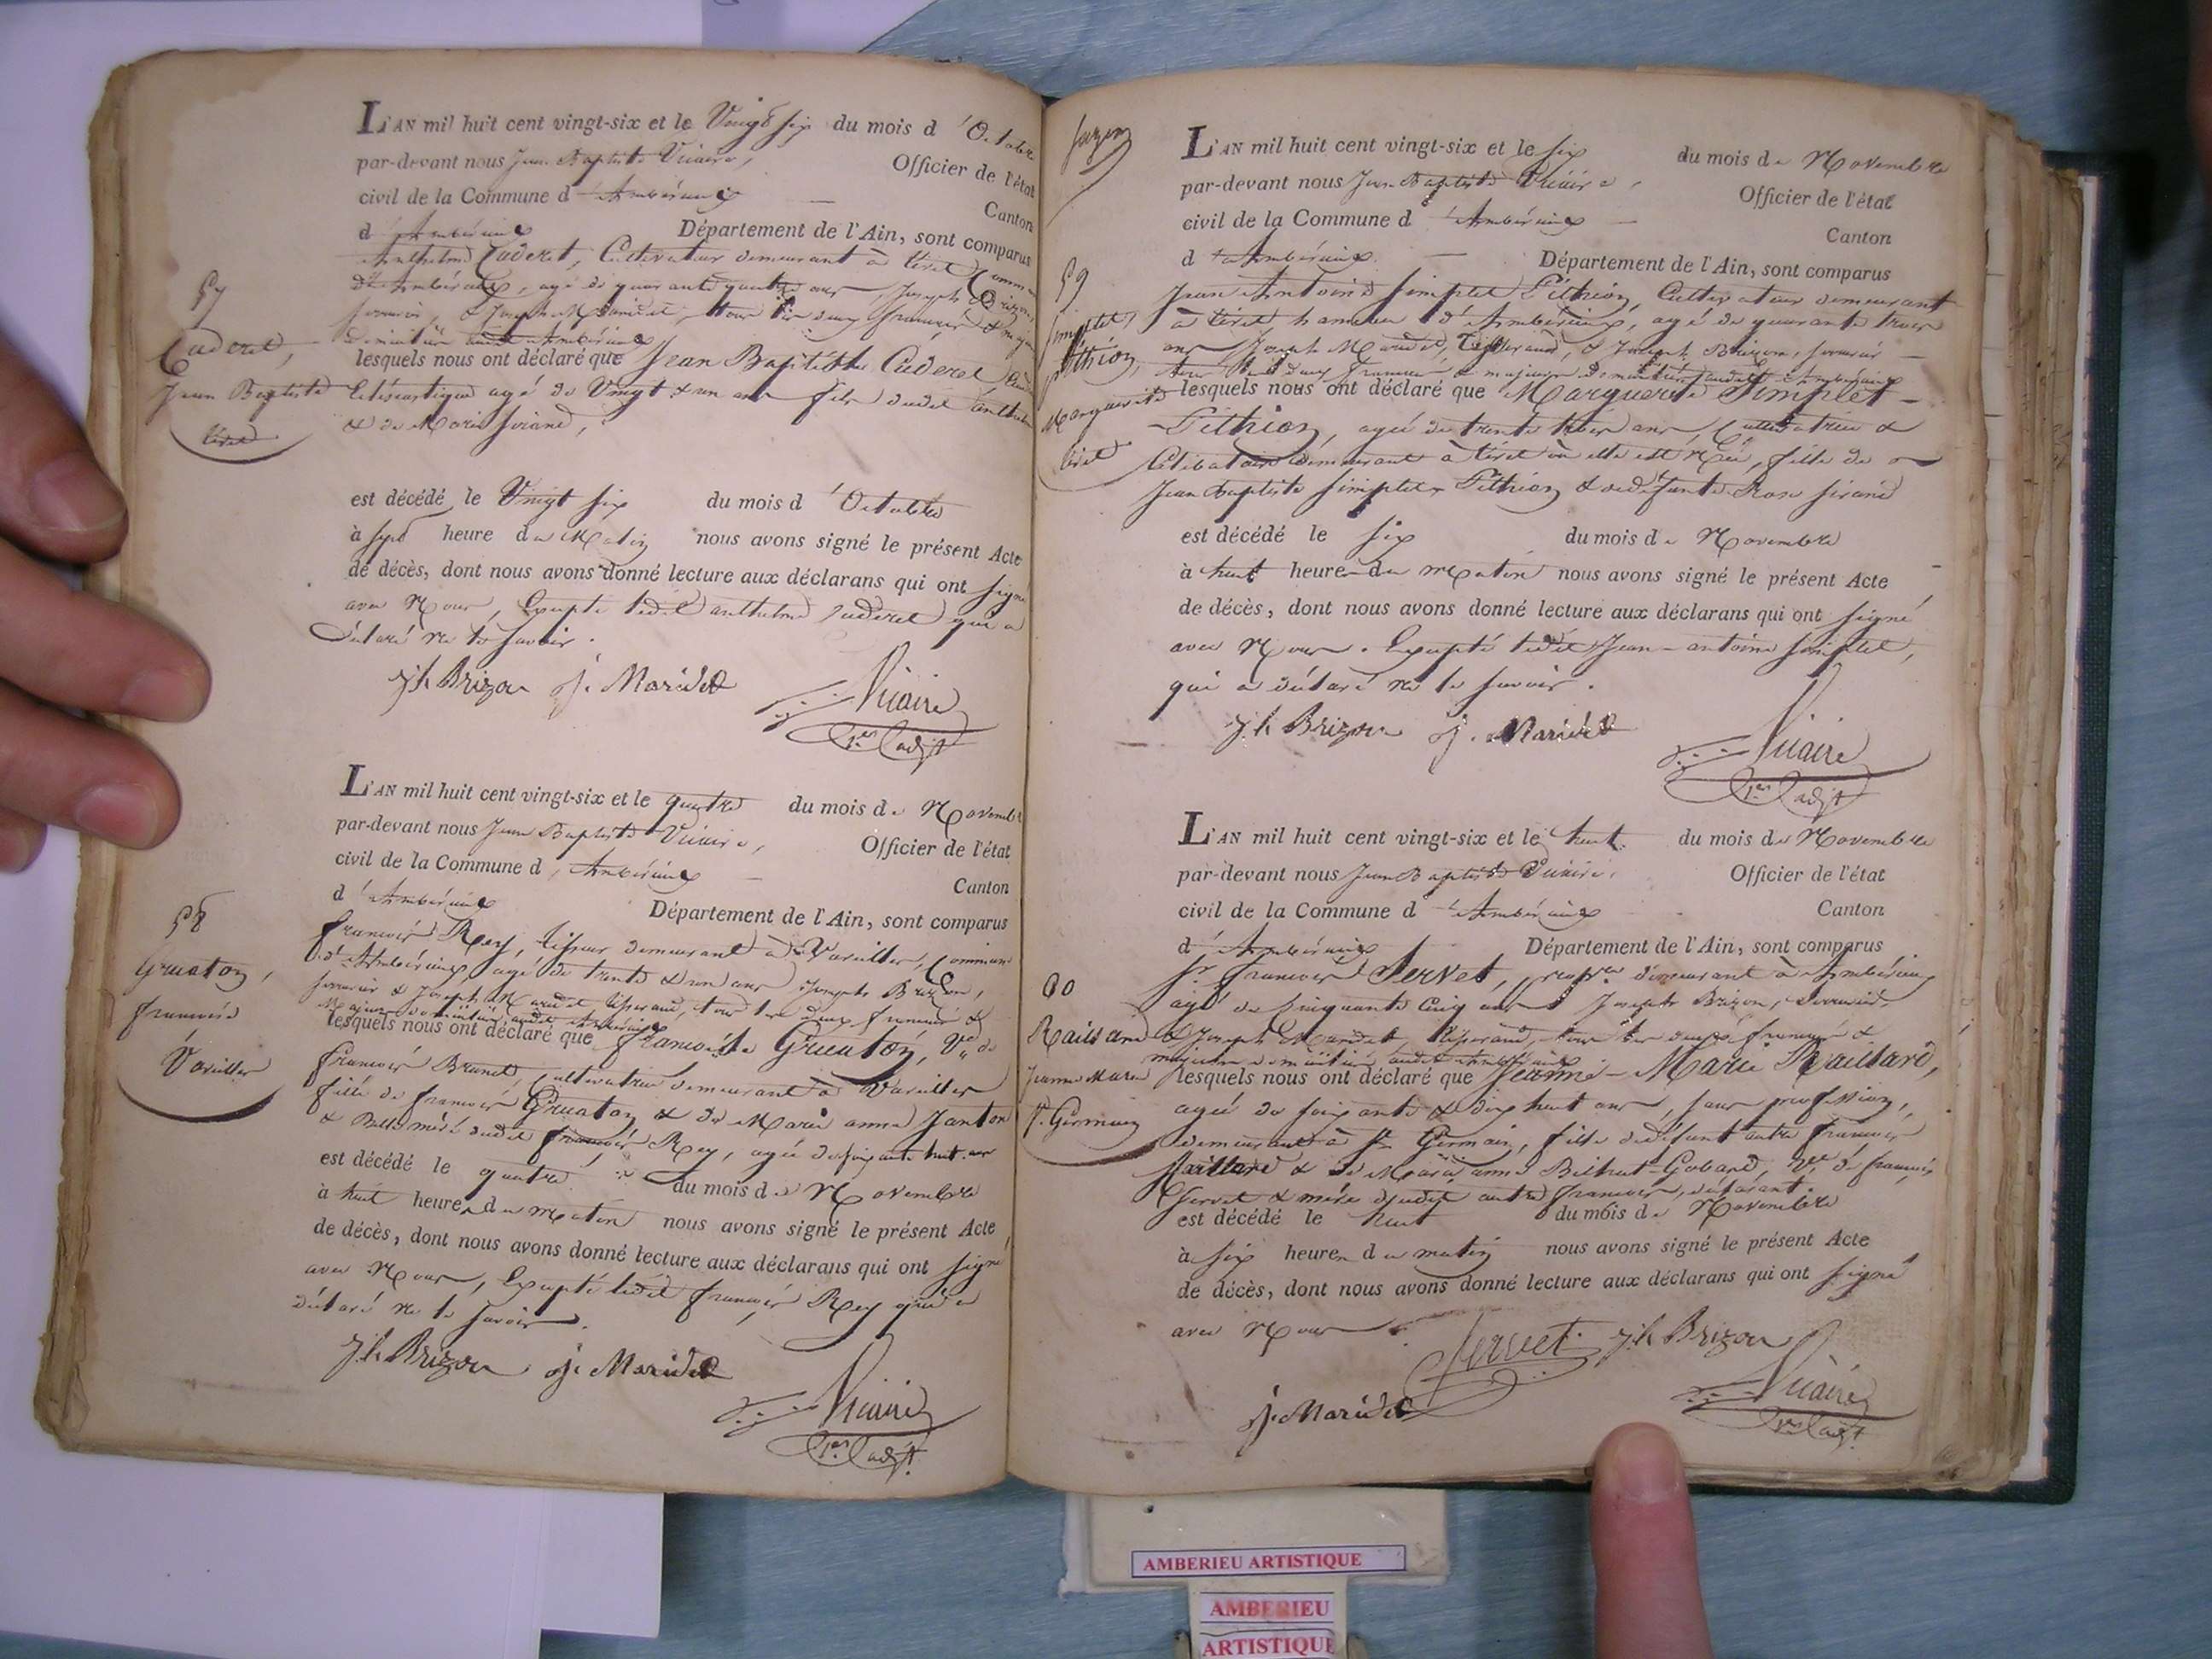 L'AN mil huit cent vingt-six et le Vingt six du mois d'Octobre
par-devant nous Jean Baptiste Vicaire, Officier de l'état
civil de la Commune d'Ambérieux Canton
d'Ambérieux Département de l'Ain, sont comparus
Anthelme Cuderel, Cultivateur demeurant à tiret Commune
d'Ambérieux, agé de quarante quatre ans, Joseph Brizon,
& Joseph Maridet, tous les deux
57
Cuderel,
Jean Baptiste
tiret
lesquels nous ont déclaré que Jean Baptiste Cuderel
agé de Vingt & un ans fils dudit anthelme
& de Marie Sirand,
est décédé le Vingt six du mois d'Octobre
à sept heure du Matin nous avons signé le présent Acte
de décès, dont nous avons donné lecture aux déclarans qui ont signé
avec Nous, Excepté ledit anthelme Cuderel qui a
déclaré ne le savoir.
Jh Brizon J. Maridet Vicaire
1er adjt
L'AN mil huit cent vingt-six et le quatre du mois de Novembre
par-devant nous Jean Baptiste Vicaire, Officier de l'état
civil de la Commune d'Ambérieux Canton
d'Ambérieux Département de l'Ain, sont comparus
58
Gruaton,
françoise
Vareilles
francois Rey, tisseur demeurant à Vareilles, Commune
d'Ambérieux, agé de trente & un ans, Joseph Brizon,
serrurier & Joseph Maridet tisserand, tous les deux francais &
Majeurs domiciliés audit Ambérieux
lesquels nous ont déclaré que francoise Gruaton, Ve de
francois Brunet, Cultivatrice demeurant à Vareilles
fille de francois Gruaton & de Marie anne Janton
& Belle mère dudit francois Rey, agée de soixante huit ans
est décédé le quatre du mois de Novembre
à huit heure du matin nous avons signé le présent Acte
de décès, dont nous avons donné lecture aux déclarans qui ont signé
avec Nous, Excepté ledit francois Rey qui a
déclaré ne le savoir.
Jh Brizon J. Maridet
Vicaire
1er adjt
L'AN mil huit cent vingt-six et le six du mois de Novembre
par-devant nous Jean Baptiste Vicaire, Officier de l'état
civil de la Commune d'Ambérieux Canton
d'Ambérieux Département de l'Ain, sont comparus
59
Simplet
Pithion,
Marguerite
tiret
Jean Antoine Simplet Pithion, Cultivateur demeurant
à tiret hameau d'Ambérieux, agé de quarante trois
ans Joseph Maridet, Tisserand, & Joseph Brizon, serrurier
tous les deux francais & majeurs domiciliés audit Ambérieux
lesquels nous ont déclaré que Marguerite Simplet-
Pithion, agée de trente trois ans, Cultivatrice &
Célibataire demeurant à tiret où elle est née, fille de
Jean Baptiste Simplet Pithion & de défunte Rose Sirand
est décédé le six du mois de Novembre
à huit heure du matin nous avons signé le présent Acte
de décès, dont nous avons donné lecture aux déclarans qui ont signé
avec Nous. Excepté ledit Jean-antoine Simplet,
qui a déclaré ne le savoir.
Jh Brizon J. Maridet
Vicaire
1er adjt
L'AN mil huit cent vingt-six et le huit du mois de Novembre
par-devant nous Jean Baptiste Vicaire, Officier de l'état
civil de la Commune d'Ambérieux Canton
d'Ambérieux Département de l'Ain, sont comparus
60
Raillard
Jeanne Marie
St. Germain
Sr. francois Servet, demeurant à Ambérieux
agé de cinquante cinq ans Joseph Brizon, serrurier,
& Joseph Maridet, tisserand, tous les deux francais &
majeurs domiciliés audit Ambérieux
lesquels nous ont déclaré que Jeanne-Marie Raillard,
agée de soixante & dix huit ans, sans profession,
demeurant à St Germain, fille de défunt autre francois
Raillard & de Marie anne Bilhut-Goband, Ve de francois
Servet & mère dudit autre francois, déclarant
est décédé le huit du mois de Novembre
à six heure du matin nous avons signé le présent Acte
de décès, dont nous avons donné lecture aux déclarans qui ont signé
avec Nous.
Servet Jh Brizon
J. Maridet Vicaire
1er adjt
AMBERIEU ARTISTIQUE
AMBERIEU
ARTISTIQUE